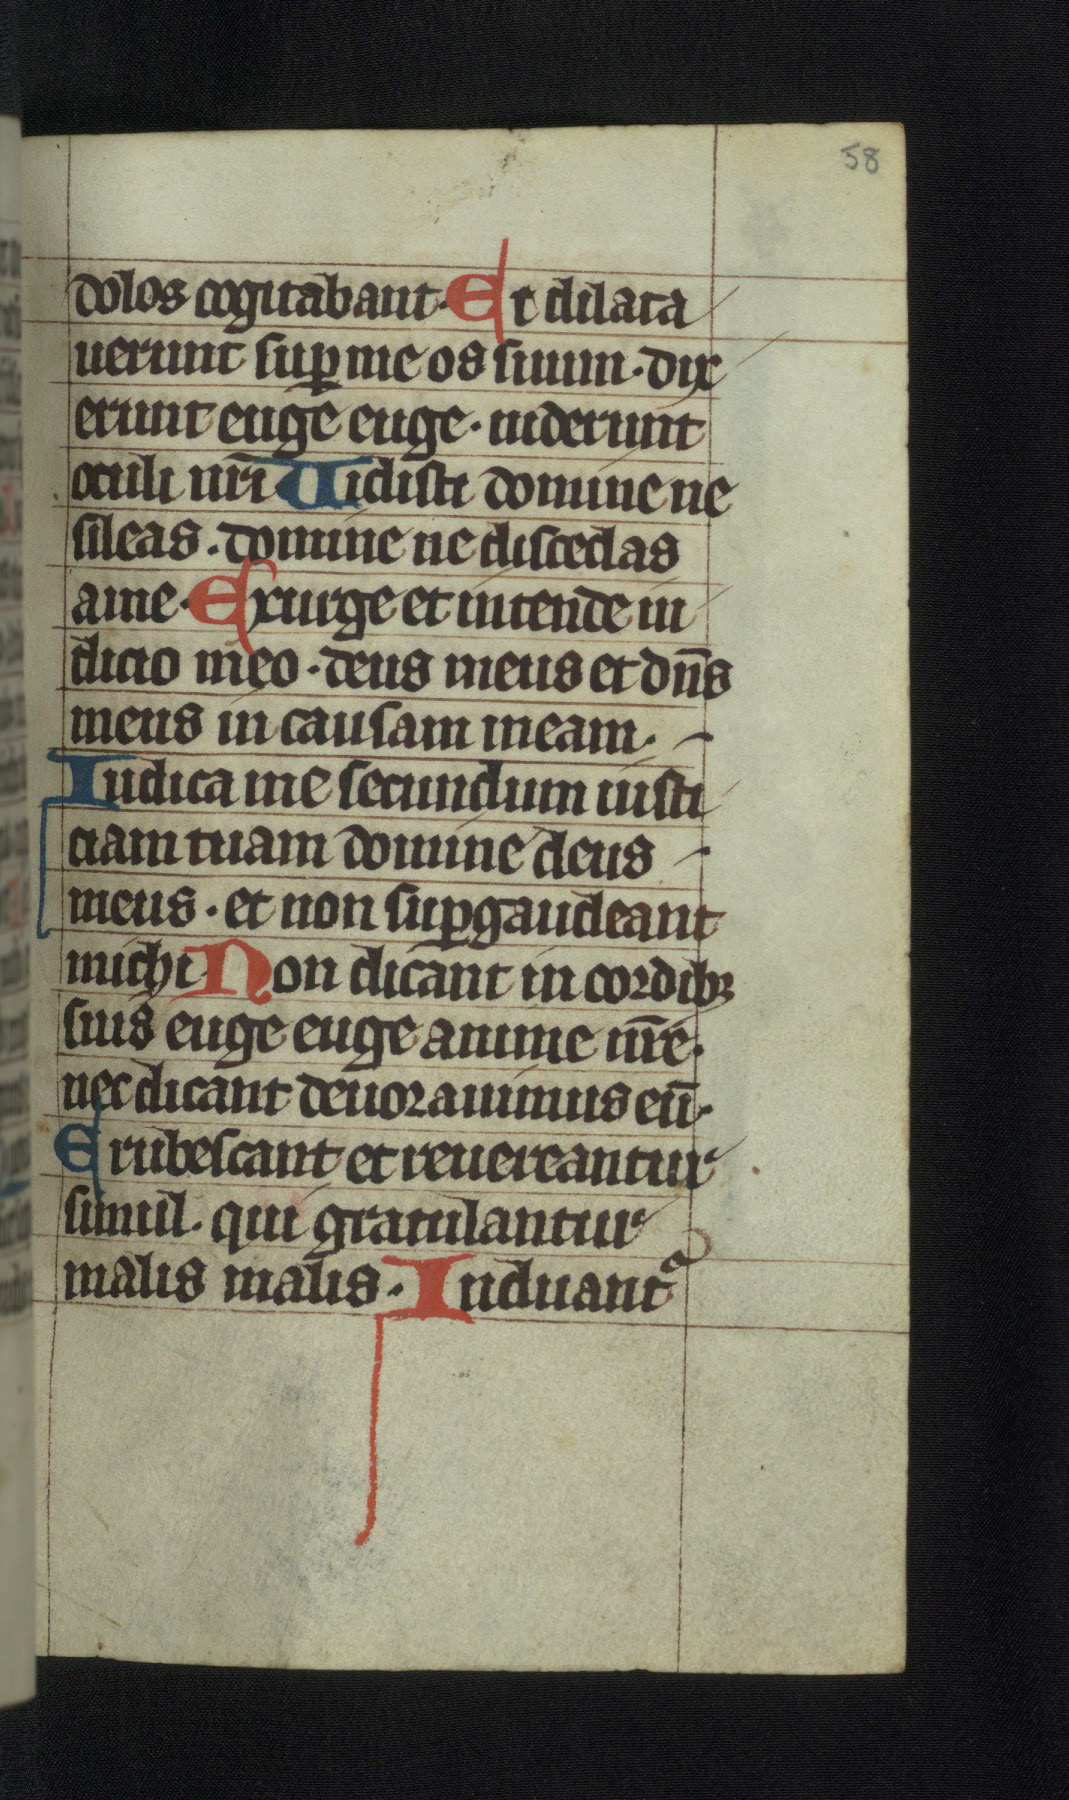 58
dolos cogitabant. Et dilata
uerunt suꝑ me os suum. dix
erunt euge euge. uiderunt
oculi nr̄i Uidisti domine ne
sileas. domine ne discedas
a me. Exurge et intende iu
dicio meo. deus meus et dn̄s
meus in causam meam.
Iudica me secundum iusti
ciam tuam domine deus
meus. et non suꝑgaudeant
michi. Non dicant in cordibꝫ
suis euge euge anime nr̄e.
nec dicant deuorauimus eū.
Erubescant et reuereantur
simul. qui gratulantur
malis malis. Induantᷣ